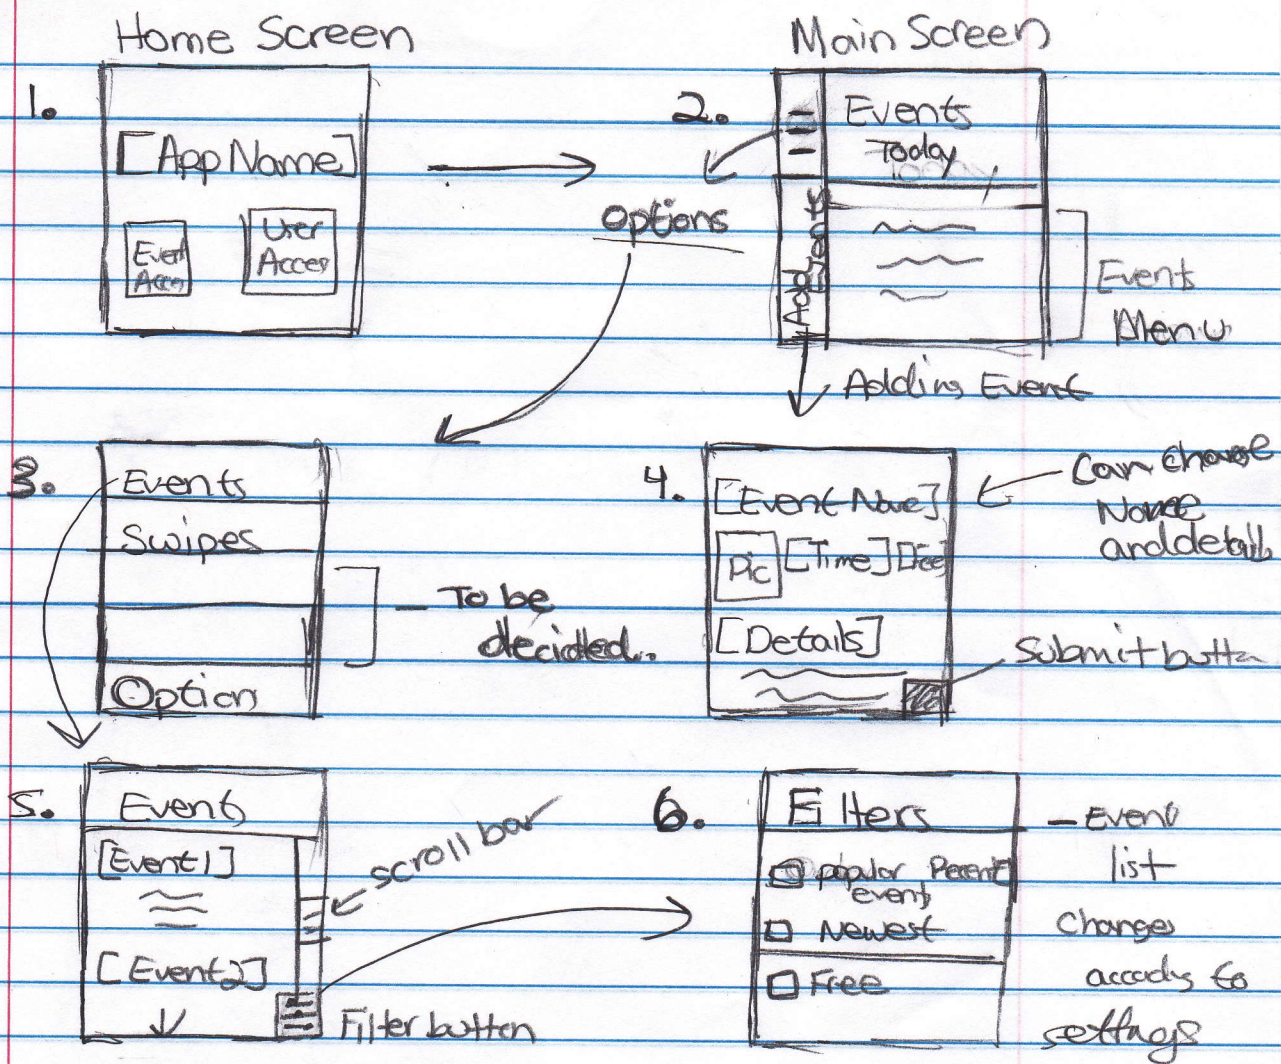 Home Screen
Main Screen
1.
[App Name]
Event
Acces
User
Acces
2.
Events
Today
Add Events
Options
Events
Menu
Adding Event
3.
Events
Swipes
Option
- To be
decided.
4.
[Event Name]
Pic
[Time]
[Details]
Can change
Name
and details
Submit button
5.
Events
[Event1]
[Event2]
scroll bar
Filter button
6.
Filters
popular
event
Newest
Free
- Event
list
changes
to
settings